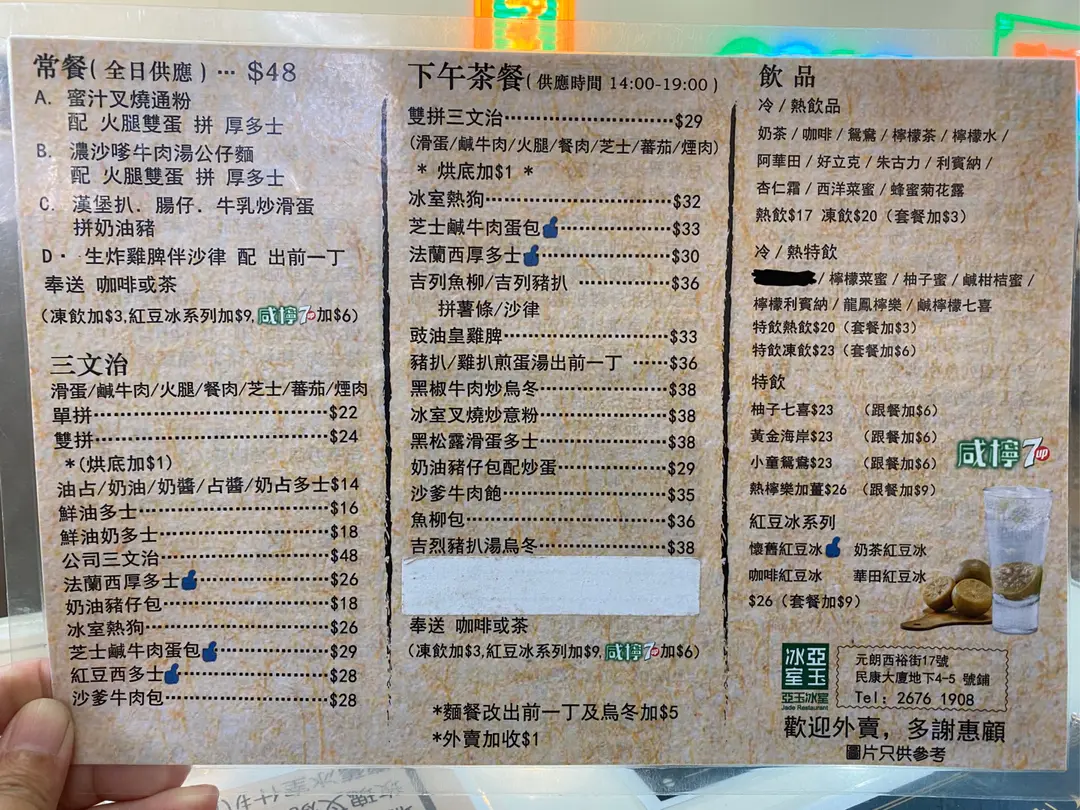 常餐(全日供應)… $48
A. 蜜汁叉燒通粉
配 火腿雙蛋 拼 厚多士
B. 濃沙嗲牛肉湯公仔麵
配 火腿雙蛋 拼 厚多士
C. 漢堡扒．腸仔．牛乳炒滑蛋
拼奶油豬
D· 生炸雞脾伴沙律 配 出前一丁
奉送 咖啡或茶
(凍飲加$3,紅豆冰系列加$9,咸檸7up加$6)
三文治
滑蛋/鹹牛肉/火腿/餐肉/芝士/蕃茄/煙肉
單拼…$22
雙拼…$24
*(烘底加$1)
油占/奶油/奶醬/占醬/奶占多士$14
鮮油多士…$16
鮮油奶多士…$18
公司三文治…$48
法蘭西厚多士…$26
奶油豬仔包…$18
冰室熱狗…$26
芝士鹹牛肉蛋包…$29
紅豆西多士…$28
沙爹牛肉包…$28
下午茶餐(供應時間 14:00-19:00)
雙拼三文治…$29
(滑蛋/鹹牛肉/火腿/餐肉/芝士/蕃茄/煙肉)
* 烘底加$1 *
冰室熱狗…$32
芝士鹹牛肉蛋包…$33
法蘭西厚多士…$30
吉列魚柳/吉列豬扒…$36
拼薯條/沙律
豉油皇雞脾…$33
豬扒/雞扒煎蛋湯出前一丁…$36
黑椒牛肉炒烏冬…$38
冰室叉燒炒意粉…$38
黑松露滑蛋多士…$38
奶油豬仔包配炒蛋…$29
沙爹牛肉飽…$35
魚柳包…$36
吉烈豬扒湯烏冬…$38
奉送 咖啡或茶
(凍飲加$3,紅豆冰系列加$9,咸檸7up加$6)
*麵餐改出前一丁及烏冬加$5
*外賣加收$1
飲品
冷/熱飲品
奶茶/咖啡/鴛鴦/檸檬茶/檸檬水/
阿華田/好立克/朱古力/利賓納/
杏仁霜/西洋菜蜜/蜂蜜菊花露
熱飲$17 凍飲$20(套餐加$3)
冷/熱特飲
/檸檬菜蜜/柚子蜜/鹹柑桔蜜/
檸檬利賓納/龍鳳檸樂/鹹檸檬七喜
特飲熱飲$20(套餐加$3)
特飲凍飲$23(套餐加$6)
特飲
柚子七喜$23 (跟餐加$6)
黃金海岸$23 (跟餐加$6)
小童鴛鴦$23 (跟餐加$6)
熱檸樂加薑$26 (跟餐加$9)
咸檸7up
紅豆冰系列
懷舊紅豆冰 奶茶紅豆冰
咖啡紅豆冰 華田紅豆冰
$26(套餐加$9)
亞玉冰室
亞玉冰室
Jade Restaurant
元朗西裕街17號
民康大廈地下4-5 號鋪
Tel: 2676 1908
歡迎外賣, 多謝惠顧
圖片只供參考